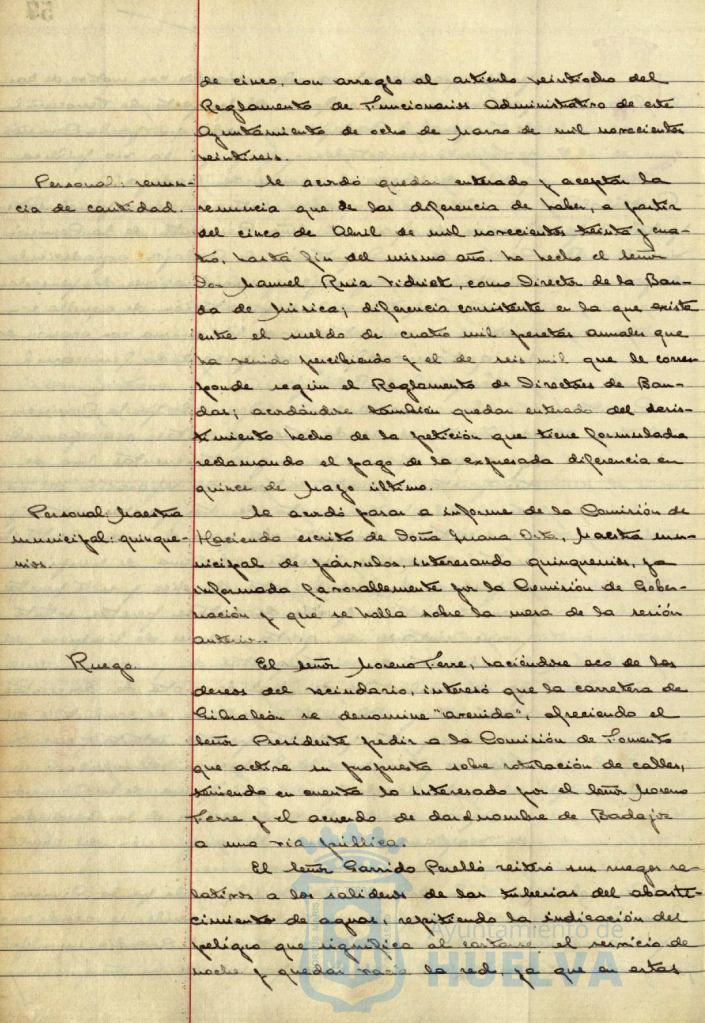 de cinco, con arreglo al artículo veintiocho del
Reglamento de Funcionarios Administrativo de este
Ayuntamiento de ocho de Marzo de mil novecientos
veintiseis.
Personal: renun-
cia de cantidad.
Se acordó quedar enterado y aceptar la
renuncia que de las diferencia de haber, a partir
del cinco de Abril de mil novecientos treinta y cua-
tro, hasta fin del mismo año, ha hecho el señor
Don Manuel Ruiz Vidriet, como Director de la Ban-
da de Música; diferencia consistente en la que existe
entre el sueldo de cuatro mil pesetas anuales que
ha venido percibiendo y el de seis mil que le corres-
ponde según el Reglamento de Directores de Ban-
das; acordándose también quedar enterado del desis-
timiento hecho de la petición que tiene formulada
reclamando el pago de la expresada diferencia en
quince de Mayo último.
Personal: Maestra
municipal: quinque-
nios.
Se acordó pasar a informe de la Comisión de
Hacienda escrito de Doña Juana Orta, Maestra mu-
nicipal de párvulos, interesando quinquenios, ya
informada favorablemente por la Comisión de Gober-
nación y que se halla sobre la mesa de la sesión
anterior.
Ruego.
El señor Moreno Ferre, haciéndose eco de los
deseos del vecindario, interesó que la carretera de
Gibraleón se denomine "avenida", ofreciendo el
Señor Presidente pedir a la Comisión de Fomento
que active su propuesta sobre rotulación de calles,
teniendo en cuenta lo interesado por el señor Moreno
Ferre y el acuerdo de dar el nombre de Badajoz
a una vía pública.
El Señor Garrido Perelló reiteró sus ruegos re-
lativos a los salideros de las tuberías del abaste-
cimiento de aguas, repitiendo la indicación del
peligro que significa al cortarse el servicio de
noche y quedar vacía la red, ya que en estas
Ayuntamiento de
HUELVA